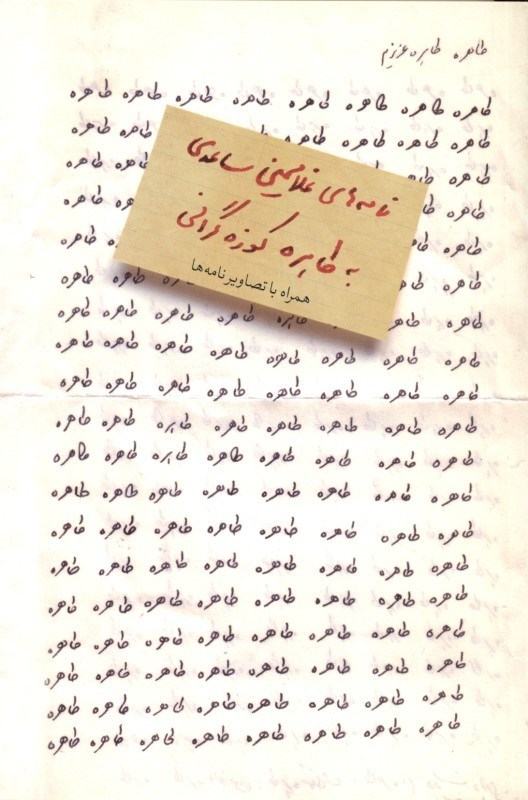 طاهره طاهره عزیزم
طاهره طاهره طاهره طاهره طاهره طاهره طاهره طاهره
طاهره طاهره طاهره طاهره طاهره طاهره
طاهره طاهره
طاهره طاهره
طاهره طاهره
طاهره طاهره
طاهره طاهره طاهره طاهره طاهره طاهره طاهره
طاهره طاهره طاهره طاهره طاهره طاهره طاهره طاهره
طاهره طاهره طاهره طاهره طاهره طاهره طاهره طاهره
طاهره طاهره طاهره طاهره طاهره طاهره طاهره طاهره
طاهره طاهره طاهره طاهره طاهره طاهره طاهره طاهره
طاهره طاهره طاهره طاهره طاهره طاهره طاهره طاهره
طاهره طاهره طاهره طاهره طاهره طاهره طاهره طاهره
طاهره طاهره طاهره طاهره طاهره طاهره طاهره طاهره
طاهره طاهره طاهره طاهره طاهره طاهره طاهره طاهره
طاهره طاهره طاهره طاهره طاهره طاهره طاهره طاهره
طاهره طاهره طاهره طاهره طاهره طاهره طاهره طاهره
طاهره طاهره طاهره طاهره طاهره طاهره طاهره طاهره
طاهره طاهره طاهره طاهره طاهره طاهره طاهره طاهره
نامه‌های غلامحسین ساعدی
به طاهره کوزه گرانی
همراه با تصاویر نامه‌ها